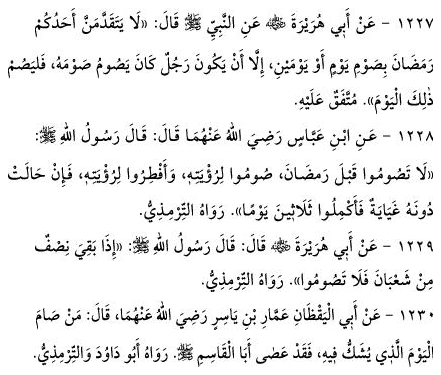 ١٢٢٧ - عَنْ أَبِي هُرَيْرَةَ ﷺ عَنِ النَّبِيِّ ﷺ قَالَ: «لَا يَتَقَدَّمَنَّ أَحَدُكُمْ
رَمَضَانَ بِصَوْمِ يَوْمٍ أَوْ يَوْمَيْنِ، إِلَّا أَنْ يَكُونَ رَجُلٌ كَانَ يَصُومُ صَوْمَهُ، فَلْيَصُمْ
ذٰلِكَ الْيَوْمَ». مُتَّفَقٌ عَلَيْهِ.
١٢٢٨ - عَنِ ابْنِ عَبَّاسٍ رَضِيَ اللهُ عَنْهُمَا قَالَ: قَالَ رَسُولُ اللهِ ﷺ:
«لَا تَصُومُوا قَبْلَ رَمَضَانَ، صُومُوا لِرُؤْيَتِهِ، وَأَفْطِرُوا لِرُؤْيَتِهِ، فَإِنْ حَالَتْ
دُونَهُ غَيَايَةٌ فَأَكْمِلُوا ثَلَاثِينَ يَوْمًا». رَوَاهُ التِّرْمِذِيُّ.
١٢٢٩ - عَنْ أَبِي هُرَيْرَةَ قَالَ: قَالَ رَسُولُ اللهِ ﷺ: «إِذَا بَقِيَ نِصْفٌ
مِنْ شَعْبَانَ فَلَا تَصُومُوا». رَوَاهُ التِّرْمِذِيُّ.
١٢٣٠ - عَنْ أَبِي الْيَقْظَانِ عَمَّارِ بْنِ يَاسِرٍ رَضِيَ اللهُ عَنْهُمَا، قَالَ: مَنْ صَامَ
الْيَوْمَ الَّذِي يُشَكُّ فِيهِ، فَقَدْ عَصٰى أَبَا الْقَاسِمِ ﷺ. رَوَاهُ أَبُو دَاوُدَ وَالتِّرْمِذِيُّ.